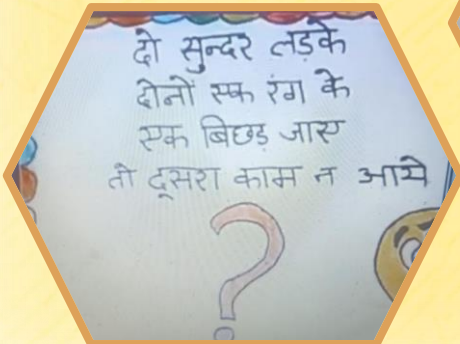 दो सुन्दर लड़के
दोनों एक रंग के
एक बिछड़ जाए
तो दूसरा काम न आये
?